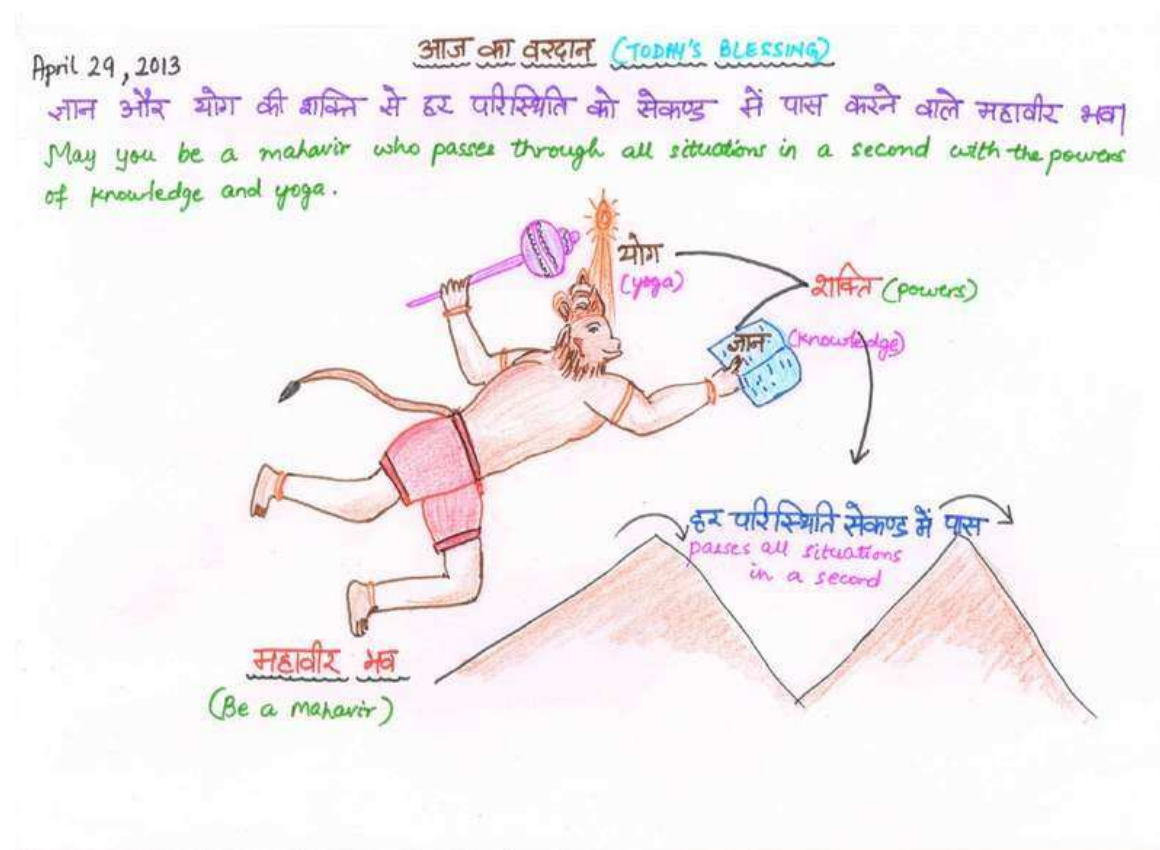 आज का वरदान (TODAY'S BLESSING)
April 29, 2013
ज्ञान और योग की शक्ति से हर परिस्थिति को सेकण्ड में पास करने वाले महावीर भव|
May you be a mahavir who passes through all situations in a second with the powers
of knowledge and yoga.
योग
(yoga)
शक्ति (powers)
ज्ञान (knowledge)
हर परिस्थिति सेकण्ड में पास
passes all situations
in a second
महावीर भव
(Be a mahavir)